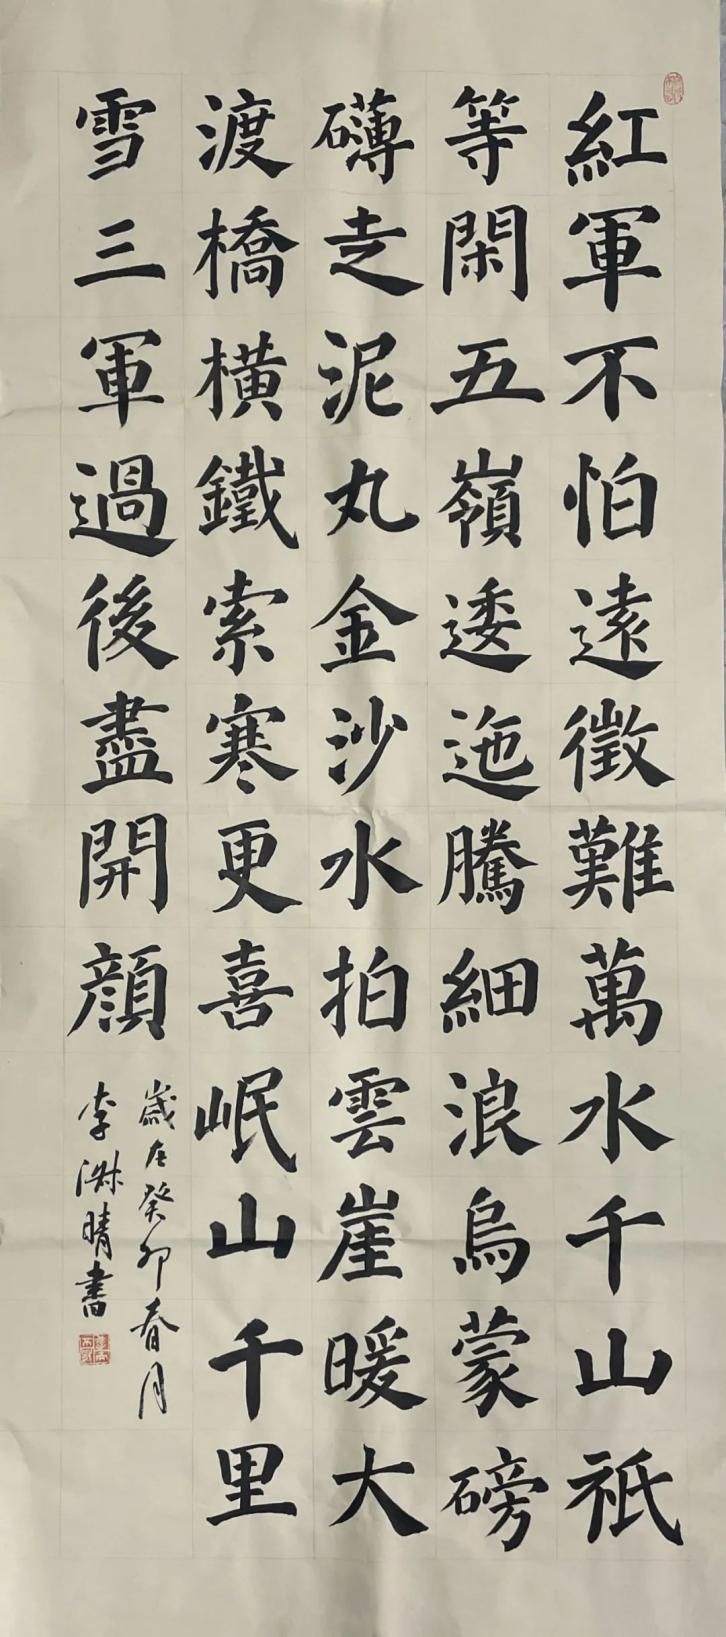 紅軍不怕遠徵難萬水千山祇
等閑五嶺逶迤騰細浪烏蒙磅
礴走泥丸金沙水拍雲崖暖大
渡橋橫鐵索寒更喜岷山千里
雪三軍過後盡開顏
歲在癸卯春月
李淋晴書